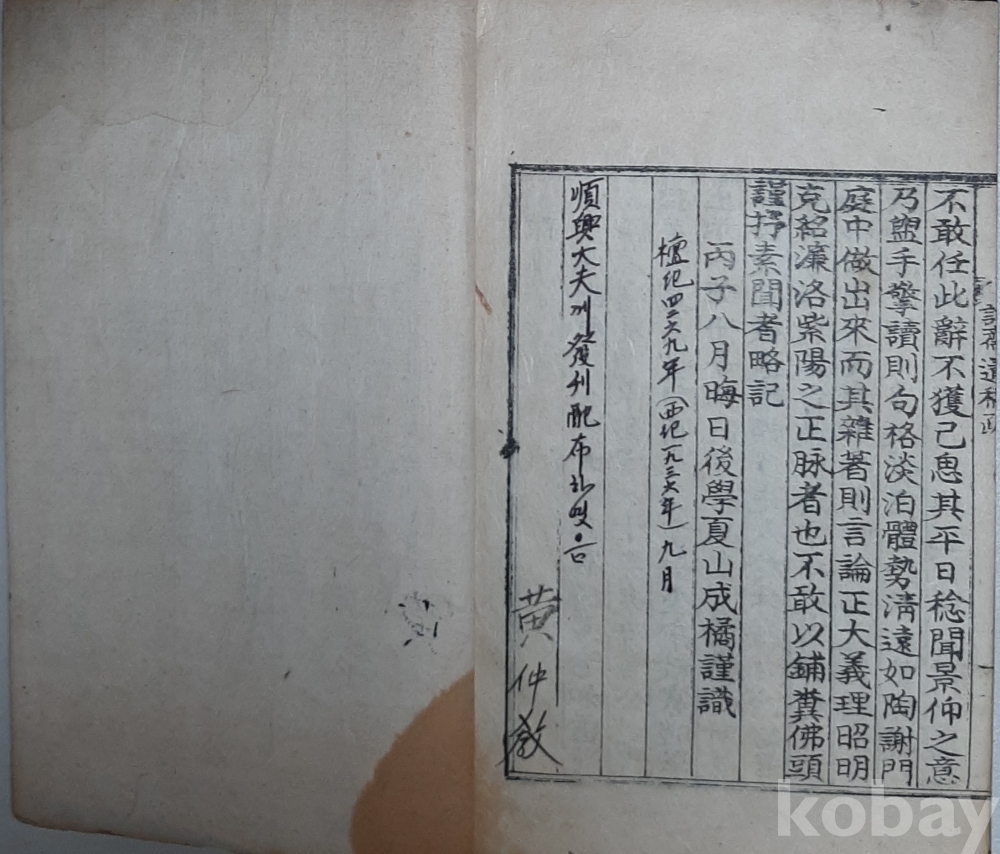 遺稿
不敢任此辭不獲己思其平日稔聞景仰之意
乃盥手擎讀則句格淡泊體勢淸遠如陶謝門
庭中做出來而其雜著則言論正大義理昭明
克紹濂洛紫陽之正脉者也不敢以鋪糞佛頭
謹抒素聞者略記
丙子八月晦日後學夏山成橘謹識
檀紀四二六九年(西紀一九三六年)九月
順興大夫 發刊配布
黄仲教
kobay